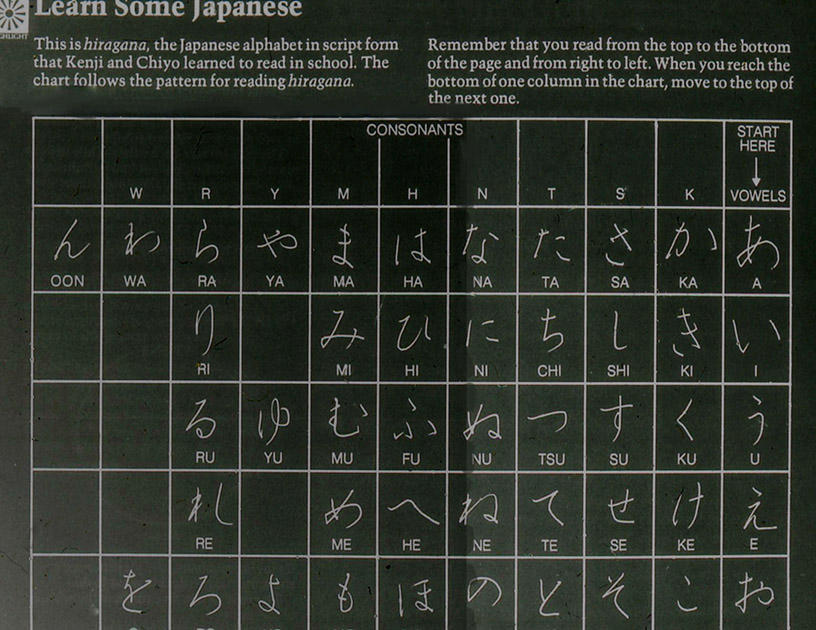 Learn Some Japanese
This is hiragana, the Japanese alphabet in script form
that Kenji and Chiyo learned to read in school. The
chart follows the pattern for reading hiragana.
Remember that you read from the top to the bottom
of the page and from right to left. When you reach the
bottom of one column in the chart, move to the top of
the next one.
CONSONANTS
START
HERE
W R Y M H N T S K VOWELS
ん わ ら や ま は な た さ か あ
OON WA RA YA MA HA NA TA SA KA A
り み ひ に ち し き い
RI MI HI NI CHI SHI KI I
る ゆ む ふ ぬ つ す く う
RU YU MU FU NU TSU SU KU U
れ め へ ね て せ け え
RE ME HE NE TE SE KE E
を ろ よ も ほ の と そ こ お